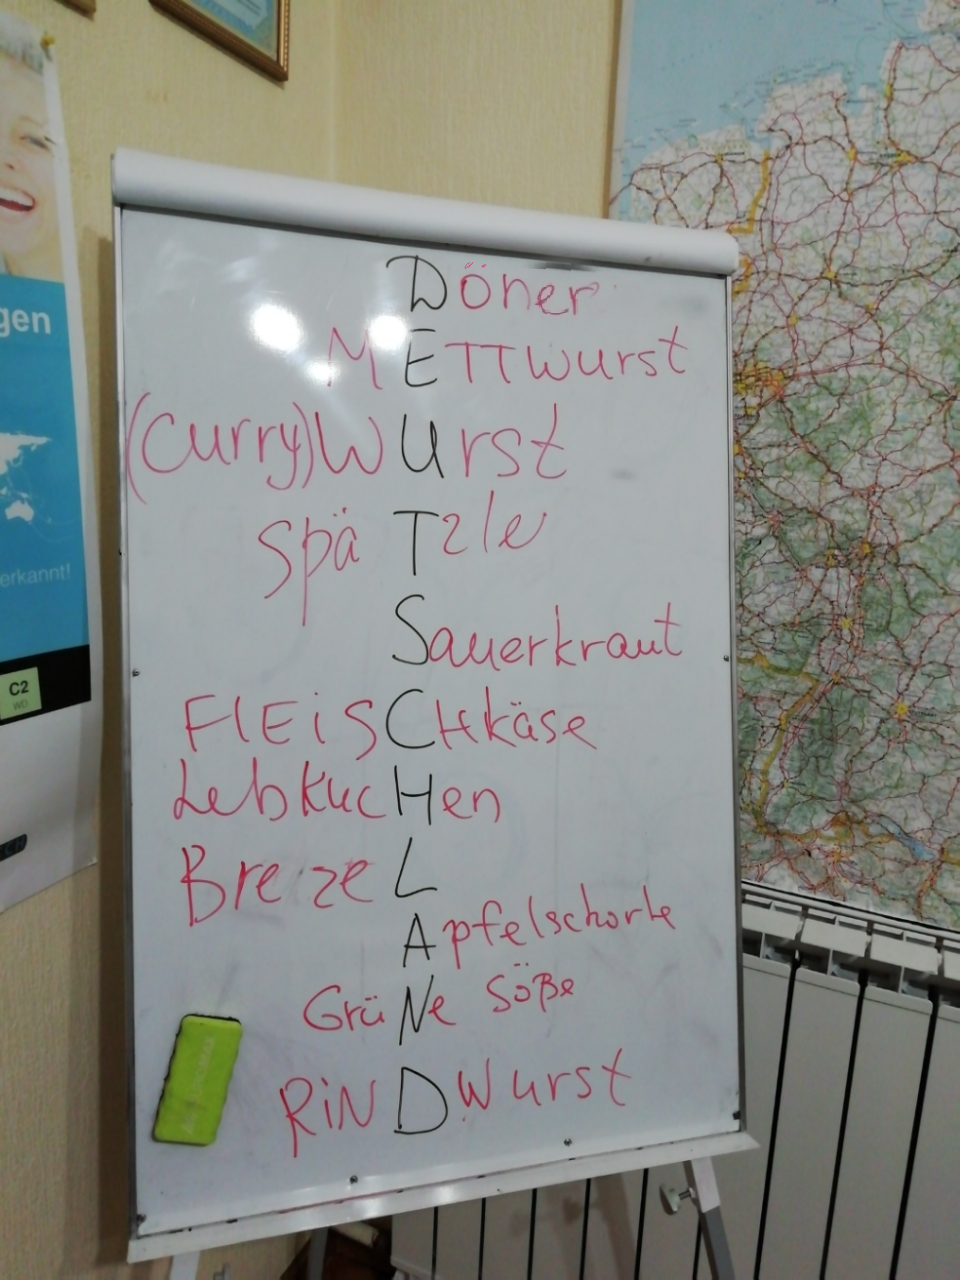 Döner
METTwurst
(Curry)Wurst
SpäTzle
Sauerkraut
FlEiSCHkäse
LebkucHen
BrezeL
Apfelschorle
GrüNe Söße
RiNDWurst
gen
erkannt!
C2